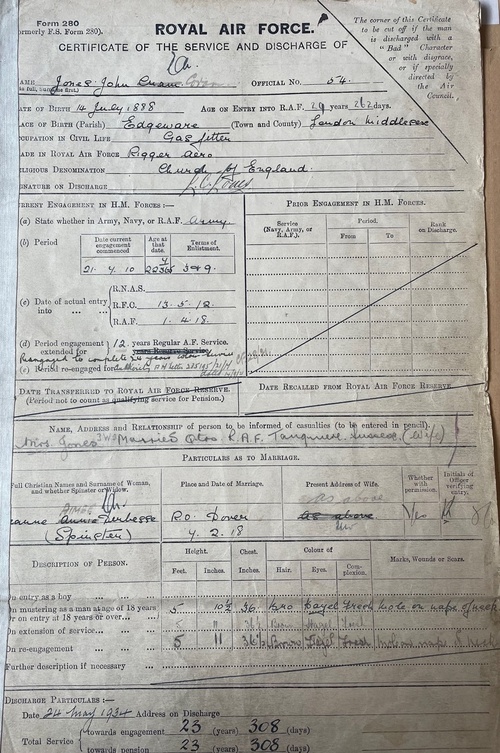 Form 280
ormerly F.S. Form 280).
The corner of this Certificate
to be cut off if the man
is discharged with a
"Bad" Character
or with disgrace,
or if specially
directed by
the Air
Council.
ROYAL AIR FORCE.
CERTIFICATE OF THE SERVICE AND DISCHARGE OF
NAME Jones John OFFICIAL No. 54
ATE OF BIRTH 14 July 1888 AGE ON ENTRY INTO R.A.F. 29 years 262 days.
LACE OF BIRTH (Parish) Edgeware (Town and County) London Middlesex
CCUPATION IN CIVIL LIFE Gas fitter
RADE IN ROYAL AIR FORCE Rigger Aero
ELIGIOUS DENOMINATION Church of England.
SIGNATURE ON DISCHARGE Jones
URRENT ENGAGEMENT IN H.M. FORCES :—
PRIOR ENGAGEMENT IN H.M. FORCES.
(a) State whether in Army, Navy, or R.A.F. Army
Service
(Navy, Army, or
R.A.F.).
Period.
From
To
Rank
on Discharge.
(b) Period
Date current
engagement
commenced
Age at
that
date.
Terms of
Enlistment.
21. 4. 10
22
3 & 9.
(c) Date of actual entry
into ... ...
R.N.A.S.
R.F.C. 13. 5. 12.
R.A.F. 1. 4. 18.
(d) Period engagement
extended for
12 years Regular A.F. Service.
years Reserve Service
Reengaged to complete 24 years
(e) Period re-engaged for
DATE TRANSFERRED TO ROYAL AIR FORCE RESERVE.
(Period not to count as qualifying service for Pension.)
DATE RECALLED FROM ROYAL AIR FORCE RESERVE.
NAME, ADDRESS AND RELATIONSHIP of person to be informed of casualties (to be entered in pencil).
Mrs. Jones Married Qtrs R.A.F. Tangmere. Sussex. (Wife)
PARTICULARS AS TO MARRIAGE.
Full Christian Names and Surname of Woman,
and whether Spinster or Widow.
Place and Date of Marriage.
Present Address of Wife.
Whether
with
permission.
Initials of
Officer
verifying
entry.
(Spinster)
R.O. Dover
4. 2. 18
as above
as above
Yes
DESCRIPTION OF PERSON.
Height.
Feet.
Inches.
Chest.
Inches.
Colour of
Hair.
Eyes.
Com-
plexion.
Marks, Wounds or Scars.
On entry as a boy ... ...
On mustering as a man at age of 18 years
or on entry at 18 years or over...
5 10½ 36 Bro Hazel Fresh Mole on nape of neck
On extension of service... ... 5 11 36½ Brown Hazel Fresh
On re-engagement ... ... 5 11 36½ Brown Hazel Fresh
Further description if necessary ...
DISCHARGE PARTICULARS :—
Date 24 May 1934 Address on Discharge
Total Service
towards engagement 23 (years) 308 (days)
towards pension 23 (years) 308 (days)